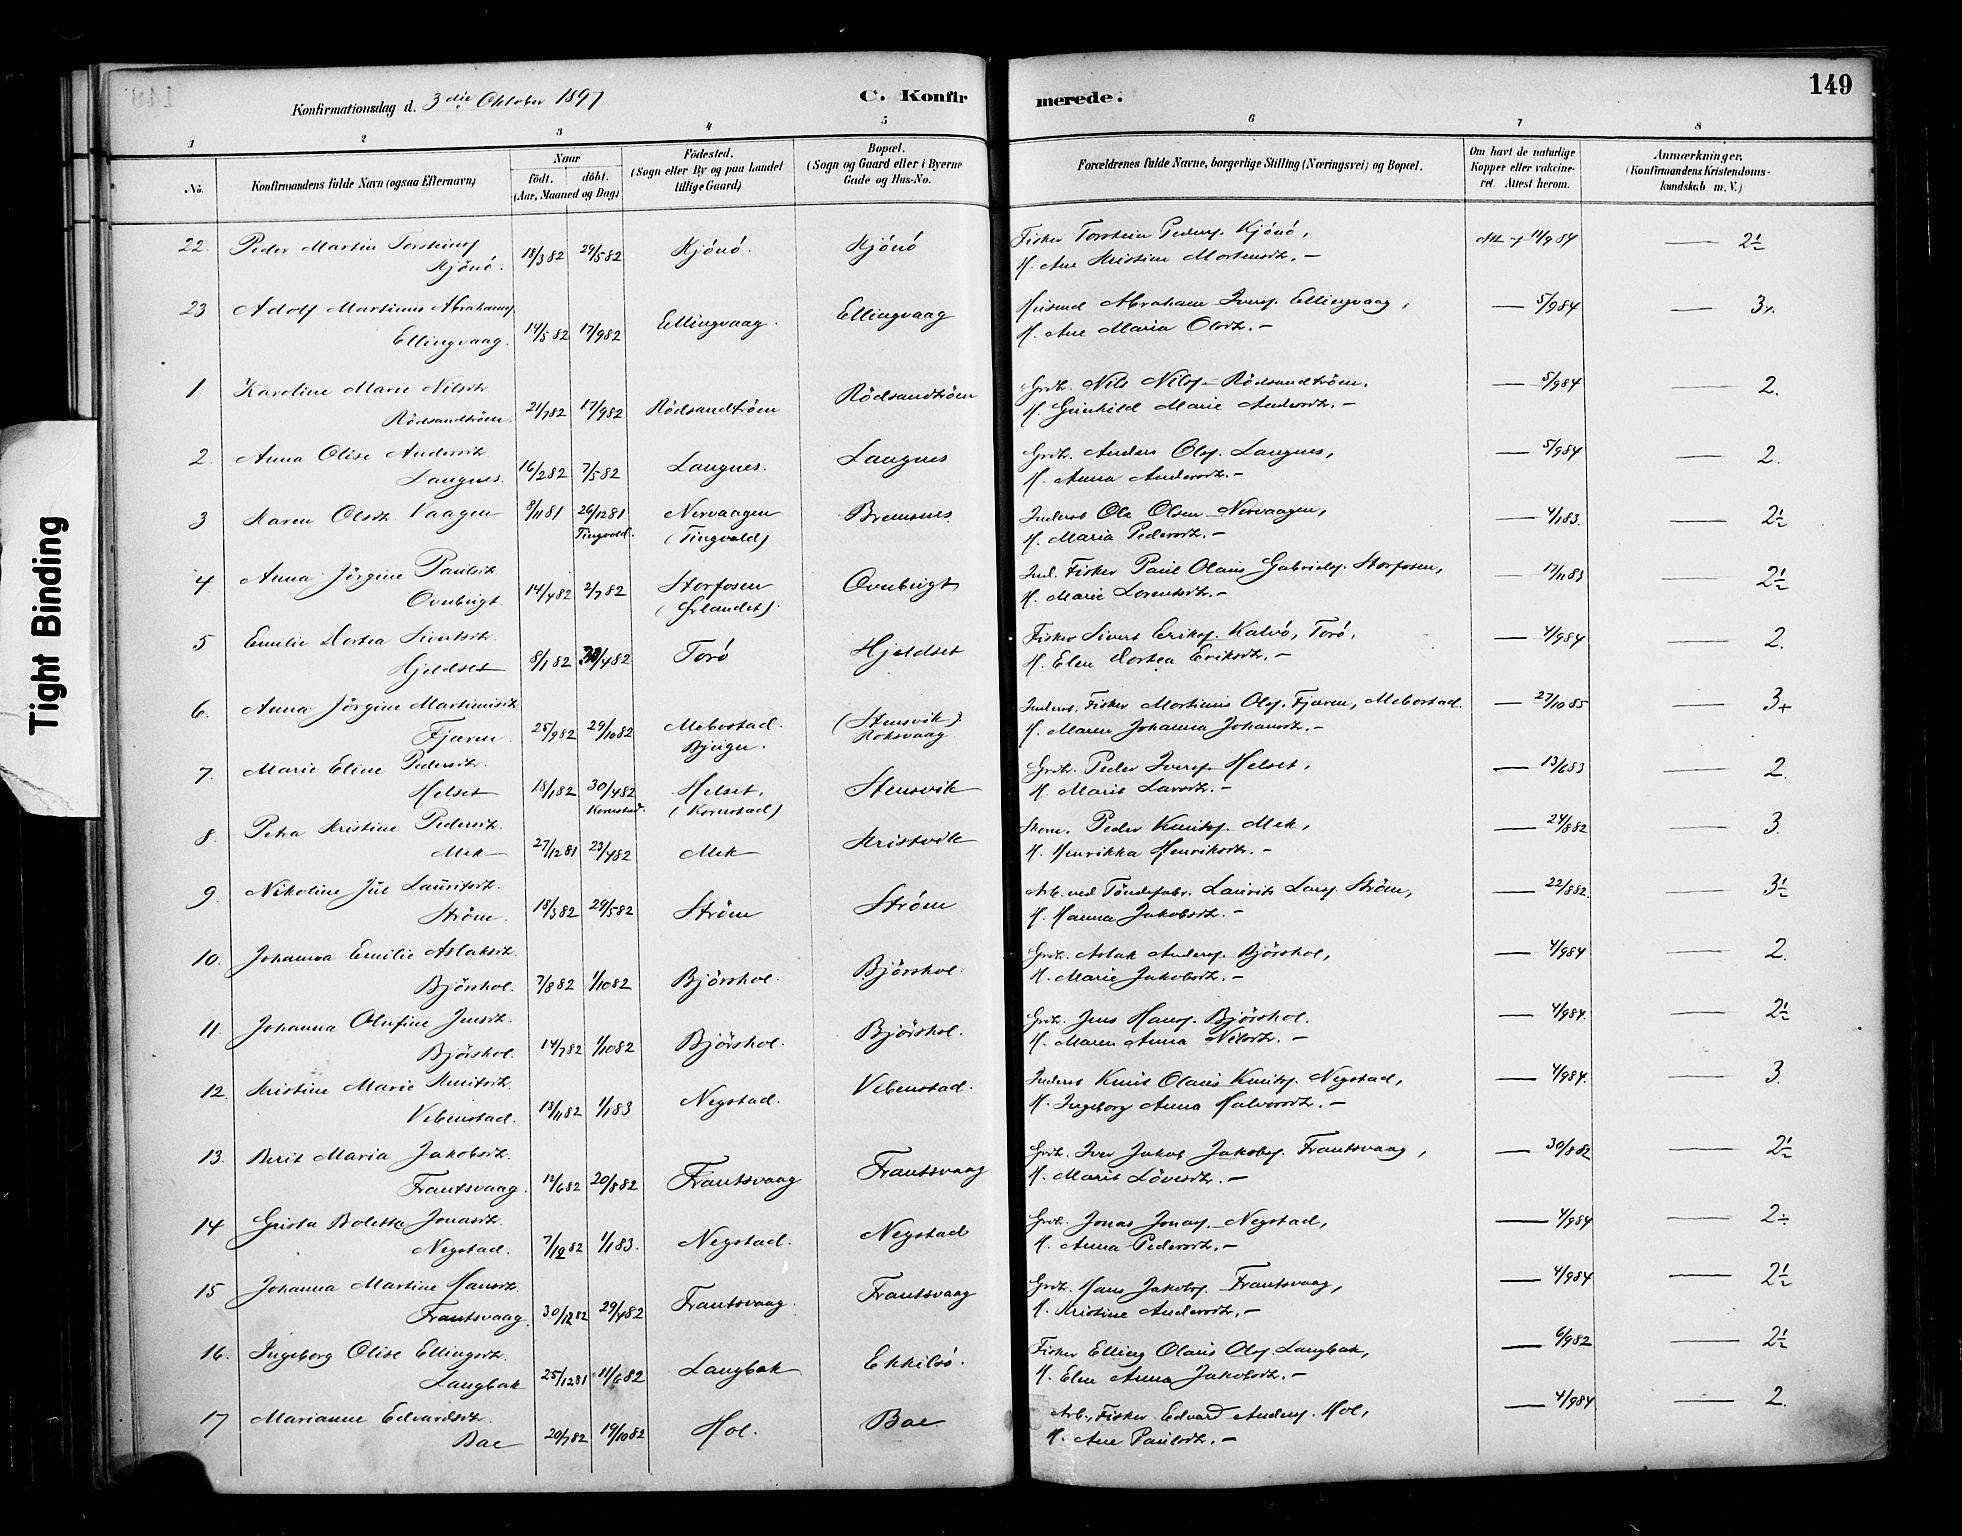 Tight Binding
149
Konfirmationsdag d. 3die Oktober 1897
C. Konfirmerede.
1 2 3 4 5 6 7 8
No.
Konfirmandens fulde Navn (ogsaa Efternavn)
Naar
födt. döbt.
(Aar, Maaned og Dag)
Födested.
(Sogn eller By og paa Landet
tillige Gaard)
Bopæl.
(Sogn og Gaard eller i Byerne
Gade og Hus-No.
Forældrenes fulde Navne, borgerlige Stilling (Næringsvei) og Bopæl.
Om havt de naturlige
Kopper eller vakcine-
ret. Attest herom.
Anmærkninger.
(Konfirmandens Kristendoms-
kundskab m. V.)
22. Peder Martin Torsteins. Kjönö. 18/3 82 29/5 82 Kjönö. Kjönö Fisker Torstein Peders. Kjönö, 11/9 84 — 2½
H. Ane Kristine Mortensdt. —
23 Adolf Martinus Abrahams. Ellingvaag. 14/5 82 17/9 82 Ellingvaag. Ellingvaag Husmd Abraham Ivers. Ellingvaag, — 5/9 84 — 3+.
H. Ane Maria Olsdt. —
1 Karoline Marie Nilsdt. Rödsandtröen. 21/7 82 17/9 82 Rödsandtröen Rödsandtröen Grdb. Nils Nils. Rödsandtröen. — 5/9 84 — 2.
H. Gunhild Marie Andersdt. —
2. Anna Olise Andersdt. Langnes. 16/2 82 7/5 82 Langnes. Langnes Grdb. Anders Ols. Langnes, — 5/9 84 — 2.
H. Anna Andersdt. —
3 Karen Olsdt. Vaagen 8/11 81 26/12 81 Tingvold. Nervaagen (Tingvold) Bremsnes. Inderst Ole Olsen Nervaagen, — 4/1 83. — 2½
H. Maria Pedersdt. —
4 Anna Jörgine Paulsdt. Ovnbugt. 14/4 82 2/7 82 Storfosen (Ørlandet). Ovnbugt Ind. Fisker Paul Olaus Gabriels. Storfosen, — 17/11 83 — 2½
H. Marie Lorentsdt. —
5 Emilie Dortea Sivertsdt. Hjeldset 8/1 82 30/4 82 Torö Hjeldset Fisker Sivert Eriks. Kalvö, Torö, — 4/9 84 — 2.
H. Elen Dortea Eriksdt. —
6. Anna Jörgine Martinusdt. Fjæren. 25/9 82 29/10 82 Mebostad. Bjugn. (Stensvik). Roksvaag. Inderst. Fisker Martinus Ols. Fjæren, Mebostad. — 27/10 85 — 3+
H. Maren Johanna Johansdt. —
7. Marie Eline Pedersdt. Helset 18/1 82 30/4 82 Kornstad. Helset, (Kornstad) Stensvik Grdb. Peder Ivers. Helset, — 13/6 83 — 2.
H. Marit Larsdt. —
8. Petra Kristine Pedersdt. Mek 27/12 81 23/4 82 Mek Kristvik Skom. Peder Knuts. Mek, — 24/8 82 — 3.
H. Henrikka Henriksdt. —
9 Nikoline Jul Lauritsdt. Ström. 18/3 82 29/5 82 Ström Ström Arb. ved Töndefabr. Laurits Lars. Ström, — 22/8 82. — 3½
H. Hanna Jakobsdt. —
10. Johanna Emilie Aslaksdt. Björshol. 7/8 82 1/10 82 Björshol. Björshol. Grdb. Aslak Anders. Björshol, — 4/9 84 — 2.
H. Marie Jakobsdt. —
11. Johanna Olufine Jensdt. Björshol. 14/7 82 1/10 82 Björshol. Björshol. Grdb. Jens Hans. Björshol. — 4/9 84. — 2½
H. Maren Anna Nilsdt. —
12. Kristine Marie Knutsdt. Vebenstad. 13/11 82 1/1 83 Negstad. Vebenstad. Inderst Knut Olaus Knuts. Negstad, — 4/9 84. — 3.
H. Ingeborg Anna Halvorsdt. —
13. Berit Maria Jakobsdt. Frantsvaag. 12/6 82 20/8 82 Frantsvaag Frantsvaag Grdb. Iver Jakob Jakobs. Frantsvaag, — 30/8 82 — 2½
H. Marit Lövesdt. —
14 Gusta Boletta Jonasdt. Negstad. 7/12 82 1/1 83. Negstad. Negstad Grdb. Jonas Jonas. Negstad, — 4/9 84 — 2÷
H. Anna Pedersdt. —
15 Johanna Martine Hansdt. Frantsvaag. 30/12 82 29/4 82 Frantsvaag. Frantsvaag Grdb. Hans Jakobs. Frantsvaag, — 4/9 84 — 2½
H. Kristine Andersdt. —
16. Ingeborg Olise Ellingsdt. Langbak 25/12 81 11/6 82 Langbak Ekkilsö. Fisker Elling Olaus Ols. Langbak, — 6/9 82 — 2½
H. Elen Anna Jakobsdt. —
17 Marianne Edvardsdt. Bae 20/7 82 19/10 82 Hol. Bae Arb., Fisker Edvard Anders. Hol, — 4/9 84 — 2.
H. Ane Paulsdt. —